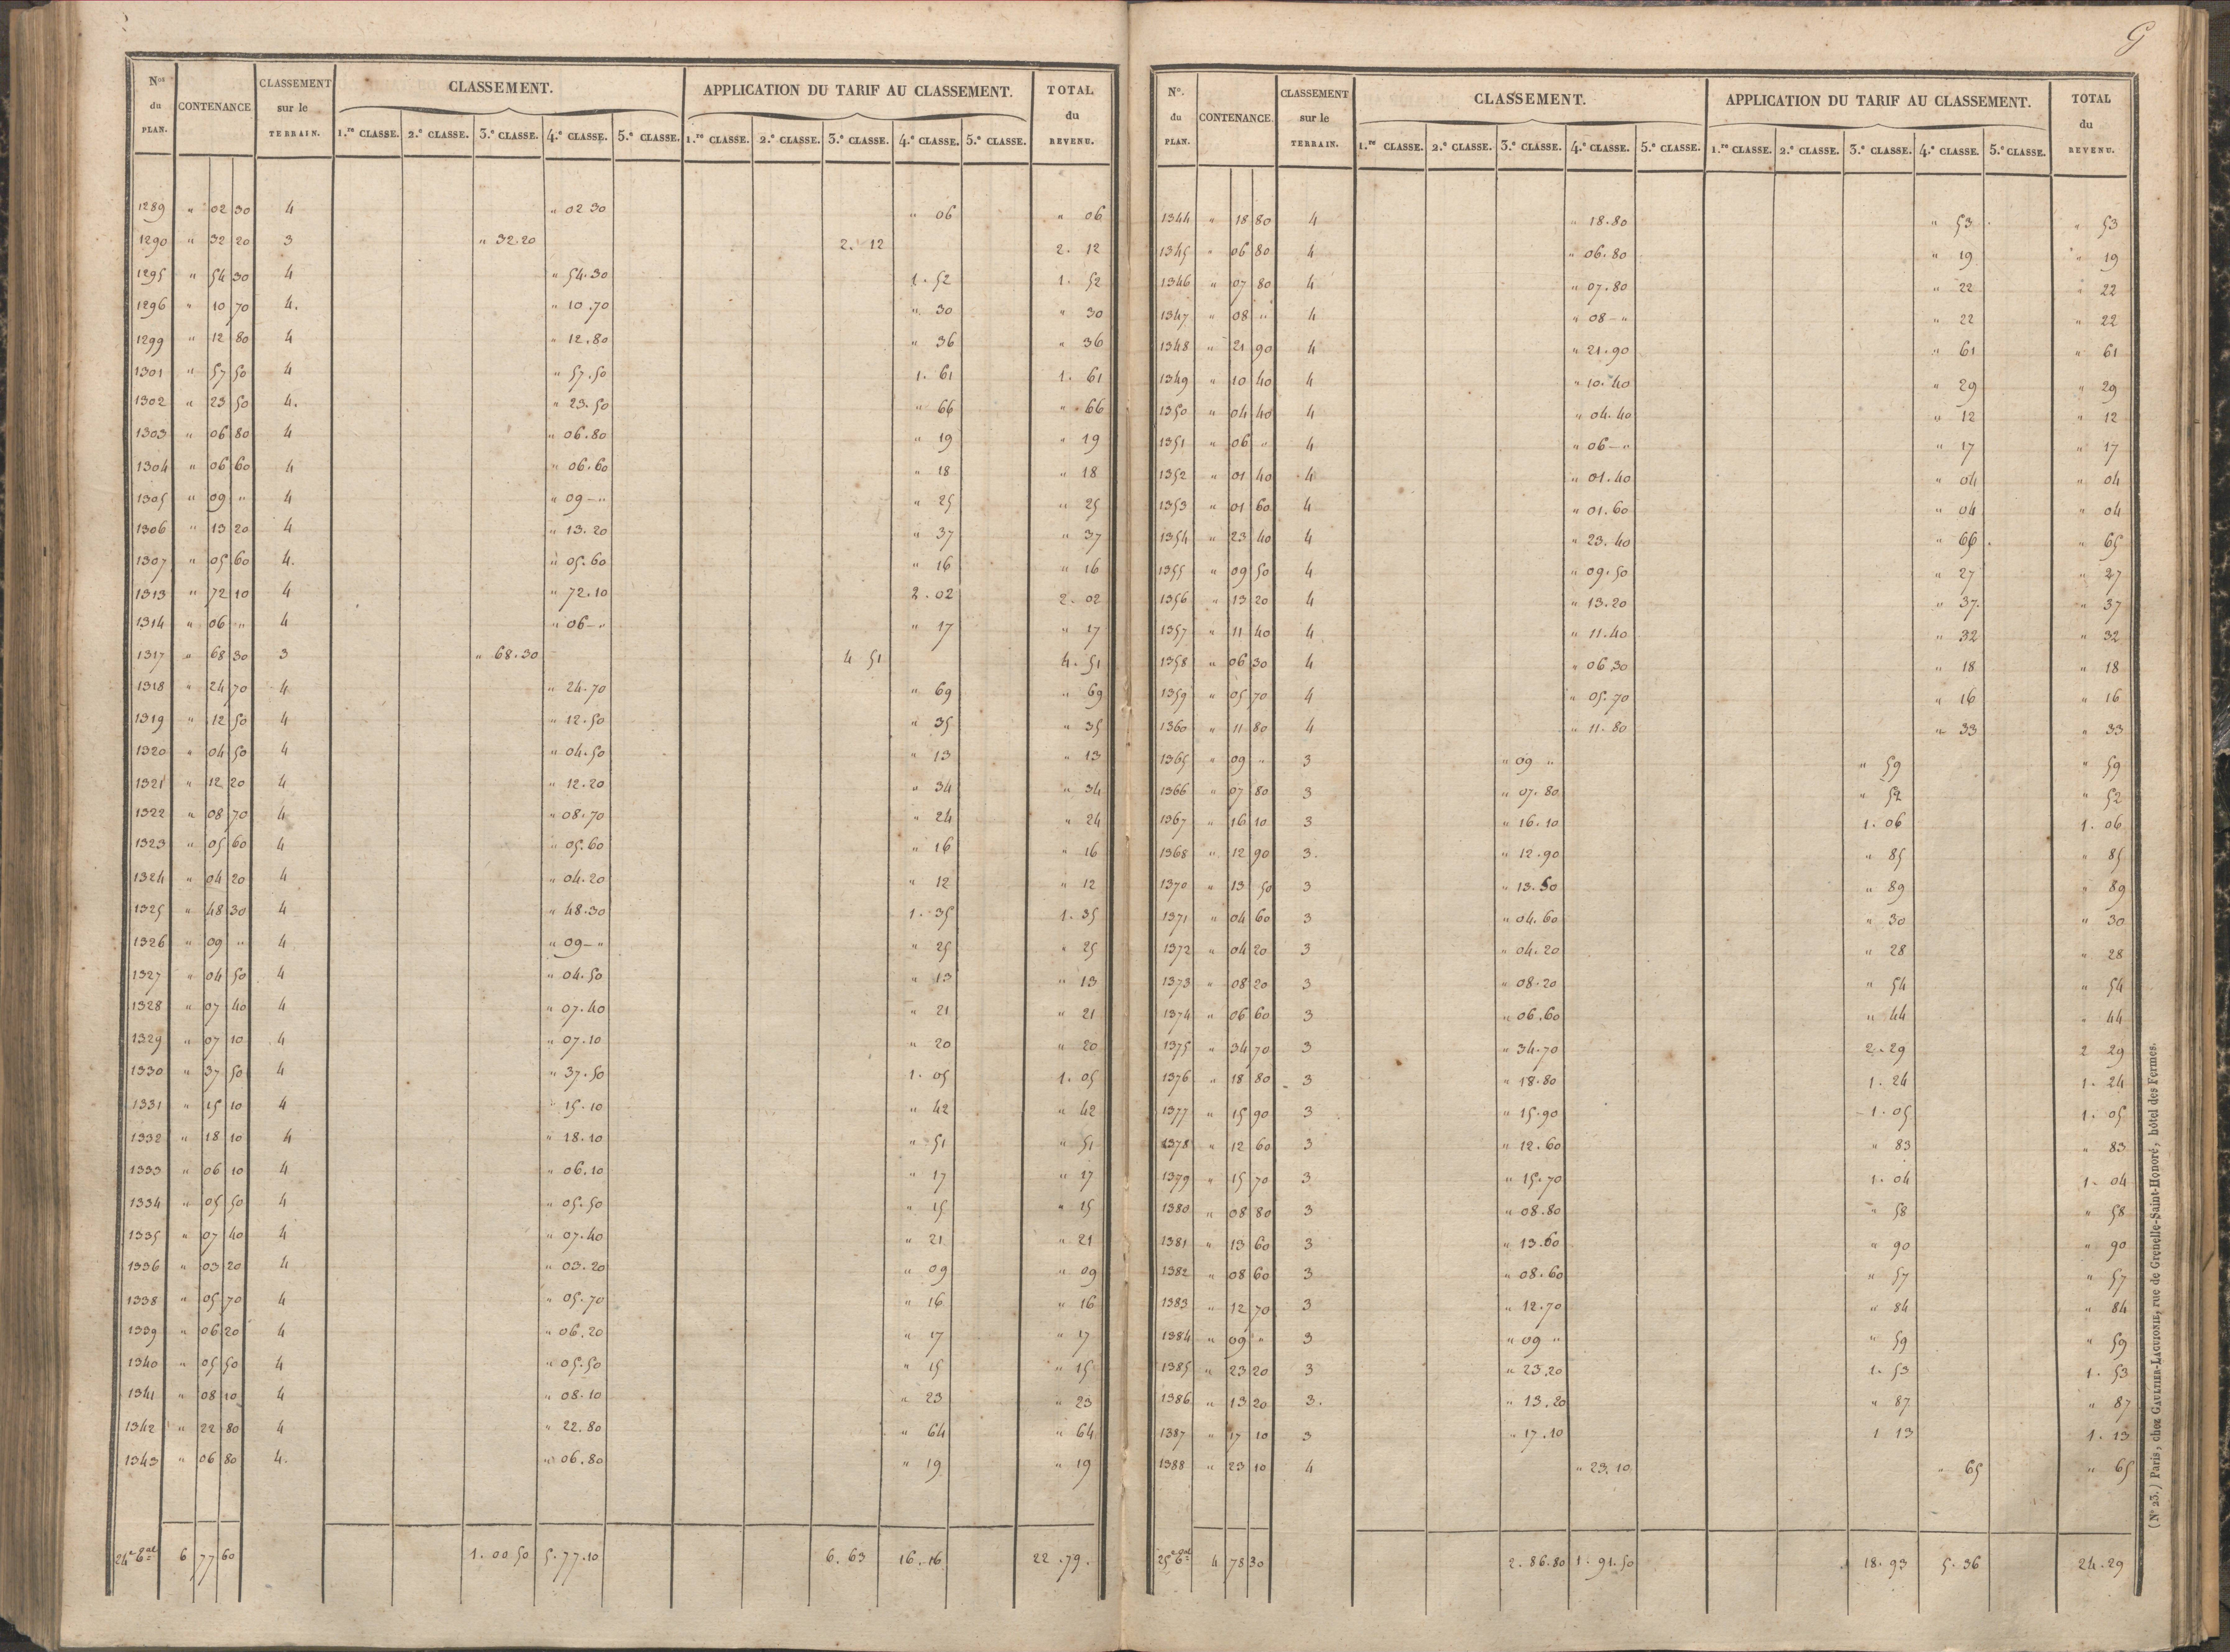 N.os du PLAN. CONTENANCE CLASSEMENT sur le TERRAIN. CLASSEMENT. APPLICATION DU TARIF AU CLASSEMENT. TOTAL du REVENU.
1.re CLASSE. 2.e CLASSE. 3.e CLASSE. 4.e CLASSE. 5.e CLASSE. 1.re CLASSE. 2.e CLASSE. 3.e CLASSE. 4.e CLASSE. 5.e CLASSE.
1289 " 02 30 4 " 02 30 " 06 " 06
1290 " 32 20 3 " 32.20 2. 12 2. 12
1295 " 54 30 4 " 54.30 1. 52 1. 52
1296 " 10 70 4. " 10.70 " 30 " 30
1299 " 12 80 4 " 12.80 " 36 " 36
1301 " 57 50 4 " 57.50 1. 61 1. 61
1302 " 23 50 4. " 23.50 " 66 " 66
1303 " 06 80 4 " 06.80 " 19 " 19
1304 " 06 60 4 " 06.60 " 18 " 18
1305 " 09 " 4 " 09-" " 25 " 25
1306 " 13 20 4 " 13.20 " 37 " 37
1307 " 05 60 4. " 05.60 " 16 " 16
1313 " 72 10 4 " 72.10 2.02 2.02
1314 " 06 " 4 " 06-" " 17 " 17
1317 " 68 30 3 " 68.30 4 51 4.51
1318 " 24 70 4 " 24.70 " 69 " 69
1319 " 12 50 4 " 12.50 " 35 " 35
1320 " 04 50 4 " 04.50 " 13 " 13
1321 " 12 20 4 " 12.20 " 34 " 34
1322 " 08 70 4 " 08.70 " 24 " 24
1323 " 05 60 4 " 05.60 " 16 " 16
1324 " 04 20 4 " 04.20 " 12 " 12
1325 " 48 30 4 " 48.30 1. 35 1. 35
1326 " 09 " 4 " 09-" " 25 " 25
1327 " 04 50 4 " 04.50 " 13 " 13
1328 " 07 40 4 " 07.40 " 21 " 21
1329 " 07 10 4 " 07.10 " 20 " 20
1330 " 37 50 4 " 37.50 1. 05 1. 05
1331 " 15 10 4 " 15.10 " 42 " 42
1332 " 18 10 4 " 18.10 " 51 " 51
1333 " 06 10 4 " 06.10 " 17 " 17
1334 " 05 50 4 " 05.50 " 15 " 15
1335 " 07 40 4 " 07.40 " 21 " 21
1336 " 03 20 4 " 03.20 " 09 " 09
1338 " 05 70 4 " 05.70 " 16 " 16
1339 " 06 20 4 " 06.20 " 17 " 17
1340 " 05 50 4 " 05.50 " 15 " 15
1341 " 08 10 4 " 08.10 " 23 " 23
1342 " 22 80 4 " 22.80 " 64 " 64
1343 " 06 80 4. " 06.80 " 19 " 19
24e 6 77 60 1.00 50 5.77.10 6.63 16.16 22.79.
N.o du PLAN. CONTENANCE. CLASSEMENT sur le TERRAIN. CLASSEMENT. APPLICATION DU TARIF AU CLASSEMENT. TOTAL du REVENU.
1.re CLASSE. 2.e CLASSE. 3.e CLASSE. 4.e CLASSE. 5.e CLASSE. 1.re CLASSE. 2.e CLASSE. 3.e CLASSE. 4.e CLASSE. 5.e CLASSE.
1344 " 18 80 4 " 18.80 " 53 " 53
1345 " 06 80 4 " 06.80 " 19 " 19
1346 " 07 80 4 " 07.80 " 22 " 22
1347 " 08 " 4 " 08-" " 22 " 22
1348 " 21 90 4 " 21.90 " 61 " 61
1349 " 10 40 4 " 10.40 " 29 " 29
1350 " 04 40 4 " 04.40 " 12 " 12
1351 " 06 " 4 " 06-" " 17 " 17
1352 " 01 40 4 " 01.40 " 04 " 04
1353 " 01 60 4 " 01.60 " 04 " 04
1354 " 23 40 4 " 23.40 " 66 " 65
1355 " 09 50 4 " 09.50 " 27 " 27
1356 " 13 20 4 " 13.20 " 37 " 37
1357 " 11 40 4 " 11.40 " 32 " 32
1358 " 06 30 4 " 06.30 " 18 " 18
1359 " 05 70 4 " 05.70 " 16 " 16
1360 " 11 80 4 " 11.80 " 33 " 33
1365 " 09 " 3 " 09 " " 59 " 59
1366 " 07 80 3 " 07.80 " 52 " 52
1367 " 16 10 3 " 16.10 1.06 1.06
1368 " 12 90 3. " 12.90 " 85 " 85
1370 " 13 50 3 " 13.50 " 89 " 89
1371 " 04 60 3 " 04.60 " 30 " 30
1372 " 04 20 3 " 04.20 " 28 " 28
1373 " 08 20 3 " 08.20 " 54 " 54
1374 " 06 60 3 " 06.60 " 44 " 44
1375 " 34 70 3 " 34.70 2.29 2 29
1376 " 18 80 3 " 18.80 1.24 1.24
1377 " 15 90 3 " 15.90 1.05 1.05
1378 " 12 60 3 " 12.60 " 83 " 83
1379 " 15 70 3 " 15.70 1.04 1.04
1380 " 08 80 3 " 08.80 " 58 " 58
1381 " 13 60 3 " 13.60 " 90 " 90
1382 " 08 60 3 " 08.60 " 57 " 57
1383 " 12 70 3 " 12.70 " 84 " 84
1384 " 09 " 3 " 09 " " 59 " 59
1385 " 23 20 3 " 23.20 1.53 1.53
1386 " 13 20 3. " 13.20 " 87 " 87
1387 " 17 10 3 " 17.10 1 13 1.13
1388 " 23 10 4 " 23.10 " 65 " 65
25e 4 78 30 2.86.80 1.91.50 18.93 5.36 24.29
(N° 23.) Paris, chez GAULTIER-LAGUIONIE, rue de Grenelle-Saint-Honoré, hôtel des Fermes.